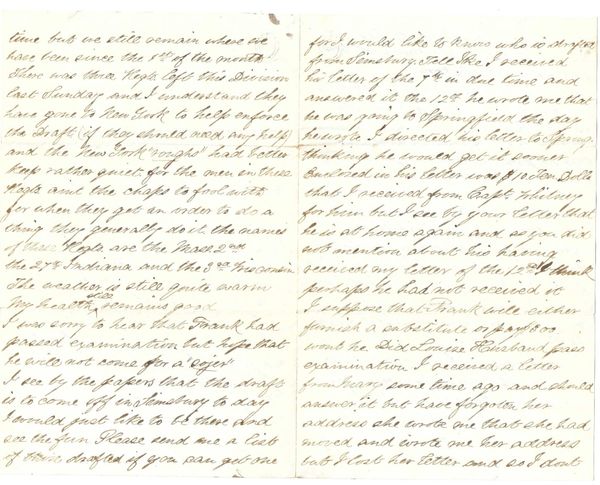 time but we still remain where we
have been since the 1st of the month
There was three Regts left this Division
last Sunday and I understand they
have gone to New York to help enforce
the Draft (if they should need any help)
and the New York "roughs" had better
keep rather quiet for the men in these
Regts aint the chaps to fool with
for when they get an order to do a
thing they generally do it the names
of these Regts are the Mass 2nd
the 27th Indiana and the 3rd Wisconsin
The weather is still quite warm
My health still remains good
I was sorry to hear that Frank had
passed examination but hope that
he will not come for a "sojer"
I see by the papers that the draft
is to come off in Simsbury to day
I would just like to be there and
see the fun Please send me a list
of those drafted if you can get one
for I would like to know who is drafted
from Simsbury. Tell Ike I received
his letter of the 7th in due time and
answered it the 12th he wrote me that
he was going to Springfield the day
he wrote I directed his letter to Spring.
thinking he would get it sooner
Enclosed in his letter was $10 Ten Dolls
that I received from Capt. Whitney
for him but I see by your letter that
he is at home again and as you did
not mention about his having
received my letter of the 12th I think
perhaps he had not received it
I suppose that Frank will either
furnish a substitute or pay $300
wont he Did Louise Husband pass
examination I received a letter
from Mary some time ago and should
answer it but have forgoten her
address she wrote me that she had
moved and wrote me her address
but I lost her letter and so I dont